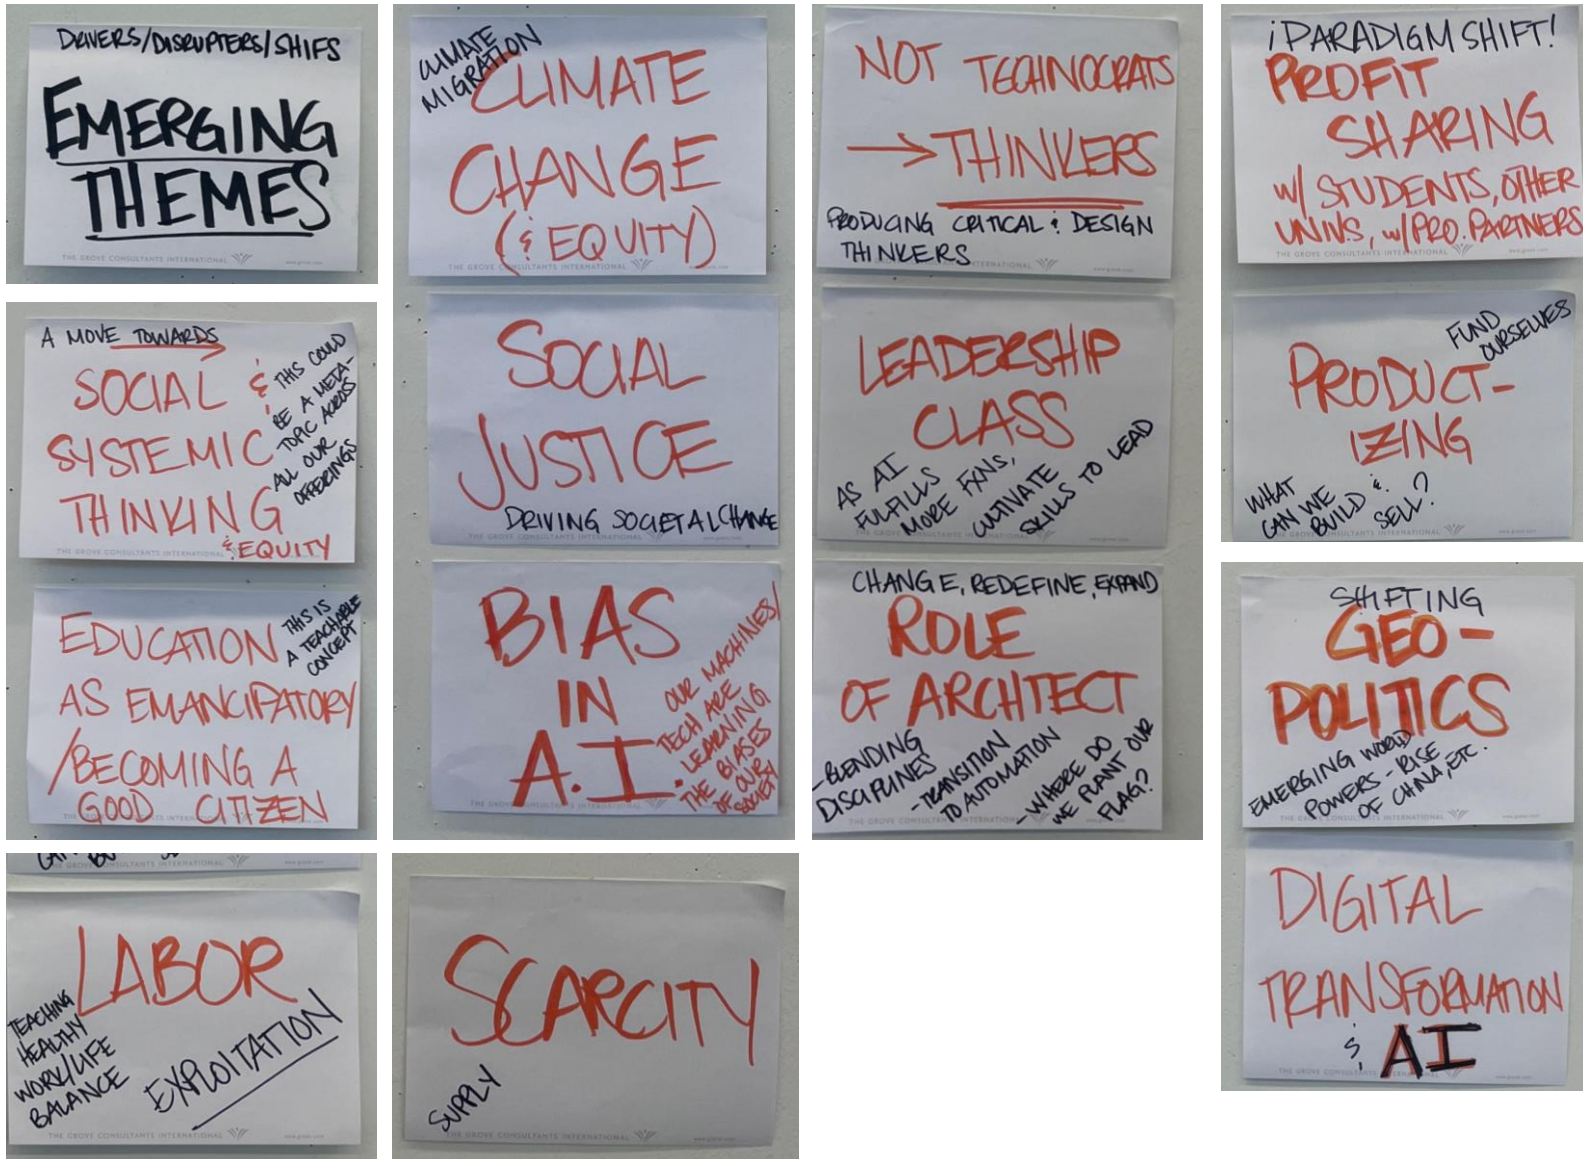 DRIVERS/DISRUPTERS/SHIFS
EMERGING
THEMES
THE GROVE CONSULTANTS INTERNATIONAL
www.grove.com
A MOVE TOWARDS
SOCIAL &
SYSTEMIC
THINKING
& EQUITY
THIS COULD
BE A META-
TOPIC ACROSS
ALL OUR
OFFERINGS
THE GROVE CONSULTANTS INTERNATIONAL
EDUCATION
AS EMANCIPATORY
/BECOMING A
GOOD CITIZEN
THIS IS
A TEACHABLE
CONCEPT
THE GROVE CONSULTANTS INTERNATIONAL
www.grove.com
LABOR
TEACHING
HEALTHY
WORK/LIFE
BALANCE
EXPLOITATION
THE GROVE CONSULTANTS INTERNATIONAL
www.grove.com
CLIMATE
MIGRATION
CLIMATE
CHANGE
(& EQUITY)
THE GROVE CONSULTANTS INTERNATIONAL
www.grove.com
SOCIAL
JUSTICE
DRIVING SOCIETAL CHANGE
THE GROVE CONSULTANTS INTERNATIONAL
www.grove.com
BIAS
IN
A.I.
OUR MACHINES/
TECH ARE
LEARNING
THE BIASES
OF OUR
SOCIETY
THE GROVE CONSULTANTS INTERNATIONAL
SCARCITY
SUPPLY
THE GROVE CONSULTANTS INTERNATIONAL
www.grove.com
NOT TECHNOCRATS
→ THINKERS
PRODUCING CRITICAL & DESIGN
THINKERS
THE GROVE CONSULTANTS INTERNATIONAL
www.grove.com
LEADERSHIP
CLASS
AS AI
FULFILLS
MORE FXNS,
CULTIVATE
SKILLS TO LEAD
THE GROVE CONSULTANTS INTERNATIONAL
www.grove.com
CHANGE, REDEFINE, EXPAND
ROLE
OF ARCHITECT
- BLENDING
DISCIPLINES
- TRANSITION
TO AUTOMATION
- WHERE DO
WE PLANT OUR
FLAG?
THE GROVE CONSULTANTS INTERNATIONAL
¡PARADIGM SHIFT!
PROFIT
SHARING
W/ STUDENTS, OTHER
UNIV'S, W/PRO. PARTNERS
THE GROVE CONSULTANTS INTERNATIONAL
www.grove.com
FUND
OURSELVES
PRODUCT-
IZING
WHAT
CAN WE
BUILD &
SELL?
THE GROVE CONSULTANTS INTERNATIONAL
www.grove.com
SHIFTING
GEO-
POLITICS
EMERGING WORLD
POWERS - RISE
OF CHINA, ETC.
THE GROVE CONSULTANTS INTERNATIONAL
www.grove.com
DIGITAL
TRANSFORMATION
& AI
THE GROVE CONSULTANTS INTERNATIONAL
www.grove.com